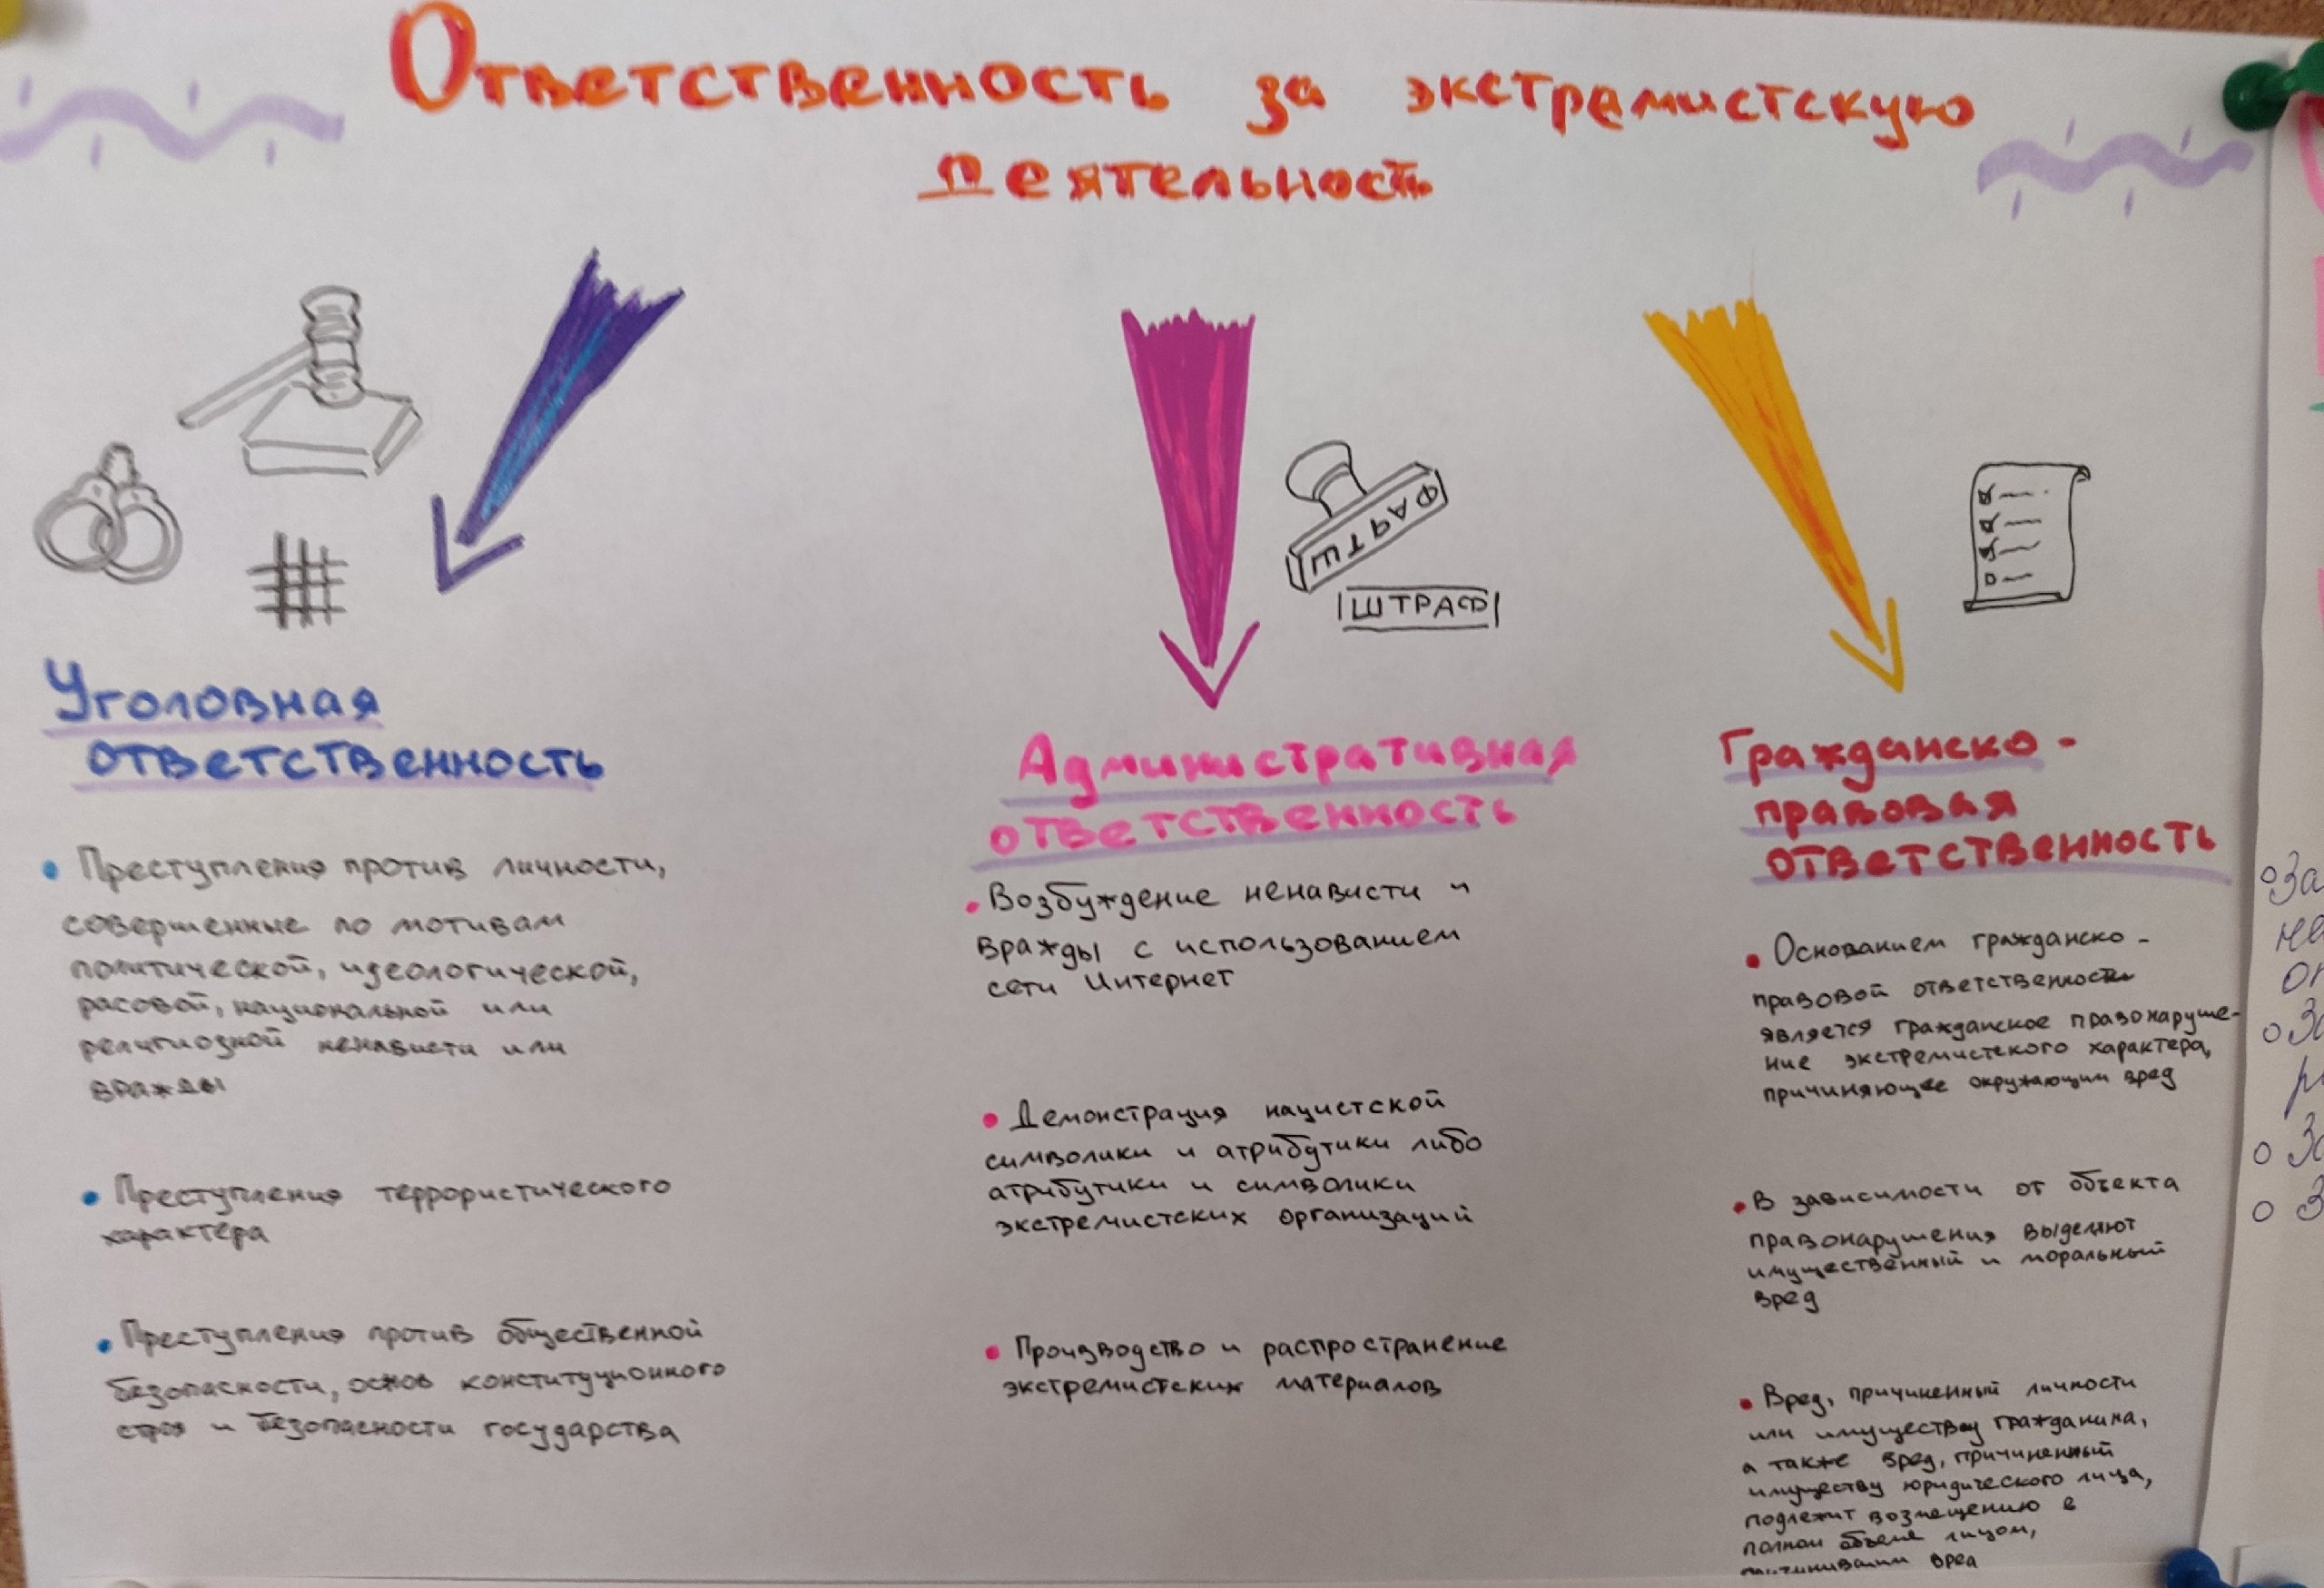 Ответственность за экстремистскую
деятельность
ШТРАФ
ШТРАФ
Уголовная
ответственность
• Преступления против личности,
совершенные по мотивам
политической, идеологической,
расовой, национальной или
религиозной ненависти или
вражды
• Преступления террористического
характера
• Преступления против общественной
безопасности, основ конституционного
строя и безопасности государства
Административная
ответственность
• Возбуждение ненависти и
вражды с использованием
сети Интернет
• Демонстрация нацистской
символики и атрибутики либо
атрибутики и символики
экстремистских организаций
• Производство и распространение
экстремистских материалов
Гражданско-
правовая
ответственность
• Основанием гражданско-
правовой ответственности
является гражданское правонаруше-
ние экстремистского характера,
причиняющее окружающим вред
• В зависимости от объекта
правонарушения выделяют
имущественный и моральный
вред
• Вред, причиненный личности
или имуществу гражданина,
а также вред, причиненный
имуществу юридического лица,
подлежит возмещению в
полном объеме лицом,
причинившим вред